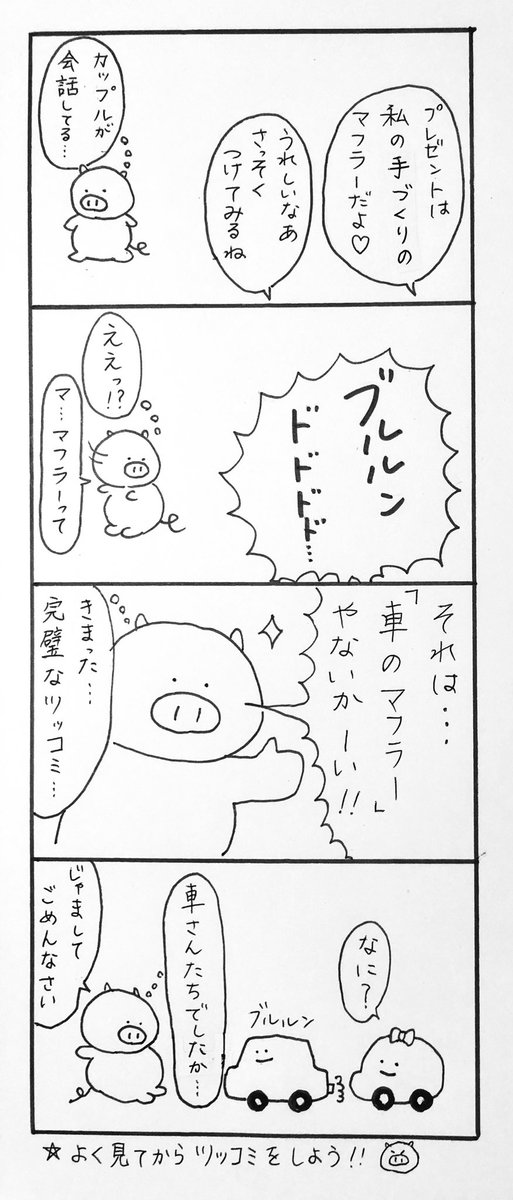 プレゼントは
私の手づくりの
マフラーだよ♡
うれしいなあ
さっそく
つけてみるね
カップルが
会話してる…
ブルルン
ドドドド…
ええっ!?
マ…マフラーって
それは…
「車のマフラー」
やないかーい!!
きまった…
完璧なツッコミ…
なに?
ブルルン
車さんたちでしたか…
じゃまして
ごめんなさい
☆よく見てからツッコミをしよう!!